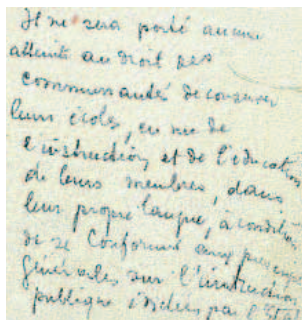 Il ne sera porté aucune
atteinte au droit des
communautés de conserver
leurs écoles, en vue de
l'instruction et de l'éducation
de leurs membres, dans
leur propre langue, à condition
de se conformer aux prescrip
générales sur l'instruction
publique édictées par l'Etat